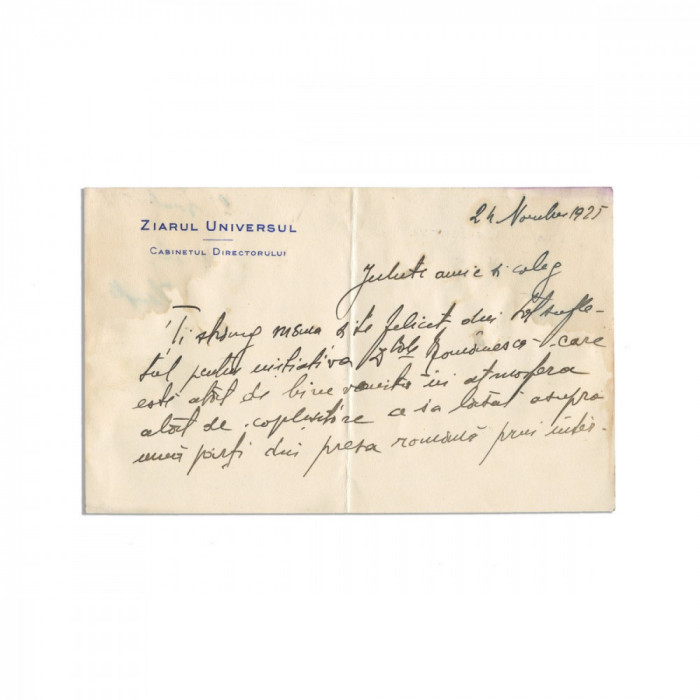 ZIARUL UNIVERSUL
CABINETUL DIRECTORULUI
24 Novembre 1925
Iubite amic si coleg
Ți strâng mâna si te felicit din tot sufle-
tul pentru initiativa Românesco - care
este atât de bine venita în atmosfera
atât de coplesitore ce s'a lăsat asupra
unei părți din presa română prin